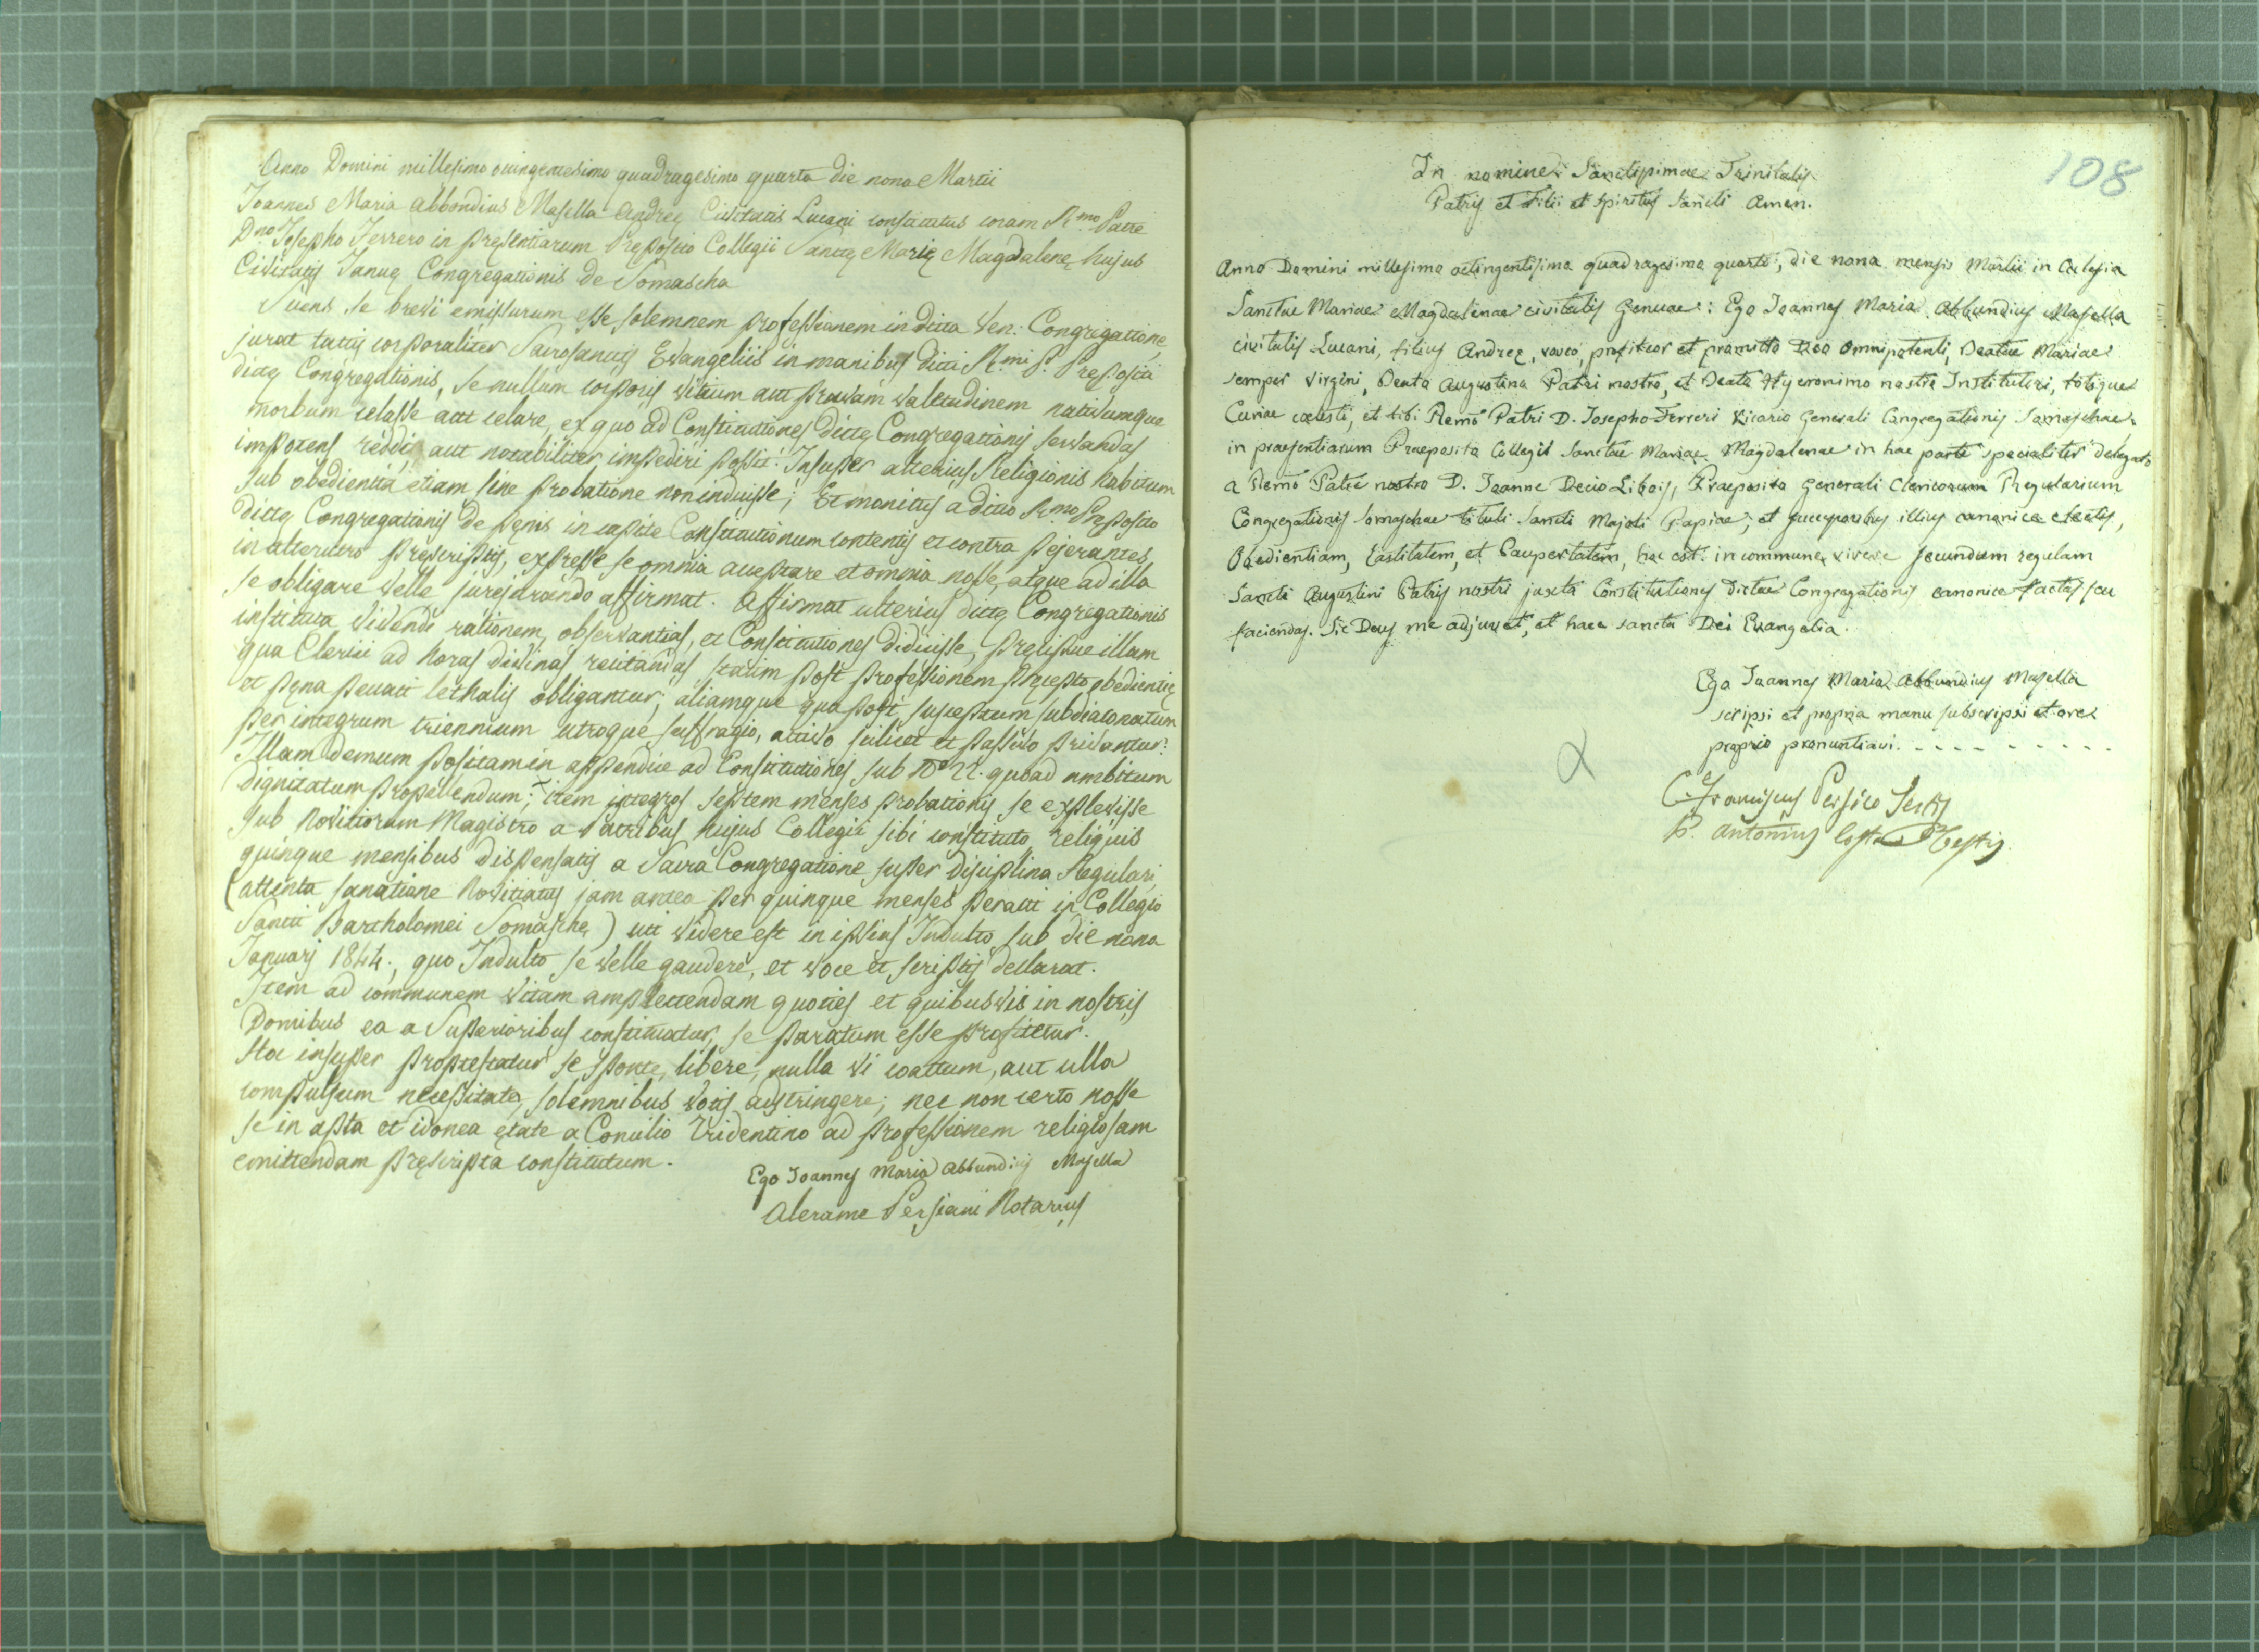 Anno Domini millesimo ouingentesimo quadragesimo quarto die nona Martii
Joannes Maria Abbondius Masella Andreę Civitatis Lucani constitutus coram R.mo Patre
D.no Josepho Ferrero in pręsentiarum Pręposito Collegii Sanctę Marię Magdalenę hujus
Civitatis Januę Congregationis de Somascha
Sciens se brevi emissurum esse solemnem professionem in dicta Ven: Congregatione,
jurat tactis corporaliter Sacrosanctis Evangeliis in manibus dicti R.mi P. Prępositi
dictę Congregationis, se nullum corporis vitium aut pravam valetudinem nativumque
morbum celasse aut celare, ex quo ad Constitutiones dictę Congregationis servandas
impotens reddi, aut notabiliter impediri possit. Insuper alterius Religionis habitum
sub obedientia etiam sine probatione non induisse; Et monitus a dicto R.mo Pręposito
dictę Congregationis de pęnis in capite Constitutionum contentis et contra pejerantes
in alterutro pręscriptis, expresse se omnia acceptare et omnia nosse, atque ad illa
se obligare velle jurejurando affirmat. Affirmat ulterius dictę Congregationis
instituta vivendi rationem, observantias, et Constitutiones didicisse, pręcipue illam
qua Clerici ad horas divinas recitandas statim post professionem pręcepto obedientię
et pęna peccati lethalis obligantur; aliamque qua post susceptum subdiaconatum
per integrum triennium utroque suffragio, activo scilicet et passivo privantur:
Illam demum positam in appendice ad Constitutiones sub N.o 22. quoad ambitum
dignitatum propellendum; item integros septem menses probationis se explevisse
sub Novitiorum Magistro a Patribus hujus Collegii sibi constituto, reliquis
quinque mensibus dispensatis a Sacra Congregatione super disciplina Regulari,
(attenta sanatione Novitiatus jam antea per quinque menses peracti in Collegio
Sancti Bartholomei Somaschę) uti videre est in ipsius Indulto sub die nona
Januarj 1844., quo Indulto se velle gaudere, et voce et scriptis declarat.
Item ad communem vitam amplectendam quoties et quibusvis in nostris
Domibus ea a Superioribus constituatur, se paratum esse profitetur.
Hoc insuper protestatur se sponte, libere, nulla vi coactum, aut ulla
compulsum necessitate, solemnibus votis adstringere; nec non certo nosse
se in apta et idonea ętate a Concilio Tridentino ad professionem religiosam
emittendam pręscripta constitutum.
Ego Joannes Maria Abbundius Masella
Alerame Persiani Notarius
108
In nomine Sanctissimae Trinitatis
Patris et Filii et Spiritus Sancti Amen.
Anno Domini millesimo octingentisimo quadragesimo quarto, die nona mensis Martii in Eclesia
Sanctae Mariae Magdalenae civitatis Genuae: Ego Joannes Maria Abbundius Masella
civitatis Lucani, filius Andreę, voveo, profiteor et promitto Deo Omnipotenti, Beatae Mariae
semper Virgini, Beato Augustino Patri nostro, et Beato Hyeronimo nostro Institutori, totique
Curiae cœlesti, et tibi Remo Patri D. Josepho Ferreri Vicario Generali Congregationis Somaschae,
in praesentiarum Praeposito Collegii Sanctae Mariae Magdalenae in hac parte specialiter delegato
a Remo Patre nostro D. Joanne Decio Libois, Praeposito Generali Clericorum Regularium
Congregationis Somaschae tituli Sancti Majoli Papiae, et successoribus illius canonice electis,
Obedientiam, Castitatem, et Paupertatem, hoc est in commune vivere secundum regulam
Sancti Augustini Patris nostri juxta Constitutiones dictae Congregationis canonice factas seu
faciendas. Sic Deus me adjuvet, et haec sancta Dei Evangelia.
Ego Joannes Maria Abbundius Masella
scripsi et propria manu subscripsi et ore
proprio pronuntiavi. - - - - - - - - -
C. Franciscus Persico Testis
P. Antonius Costa Testis